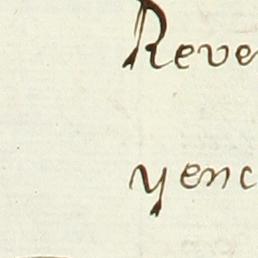 Reve
yenc